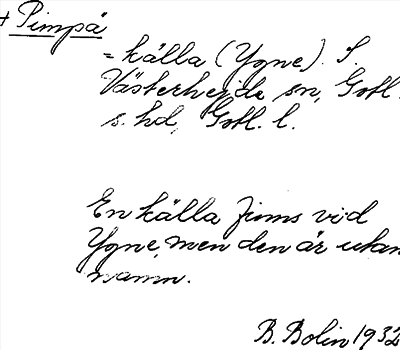 + Pimpå
= källa (Ygne). S.
Västerhejde sn, Gotl.
s. hd, Gotl. l.
En källa finns vid
Ygne, men den är utan
namn.
B. Bolin 1932